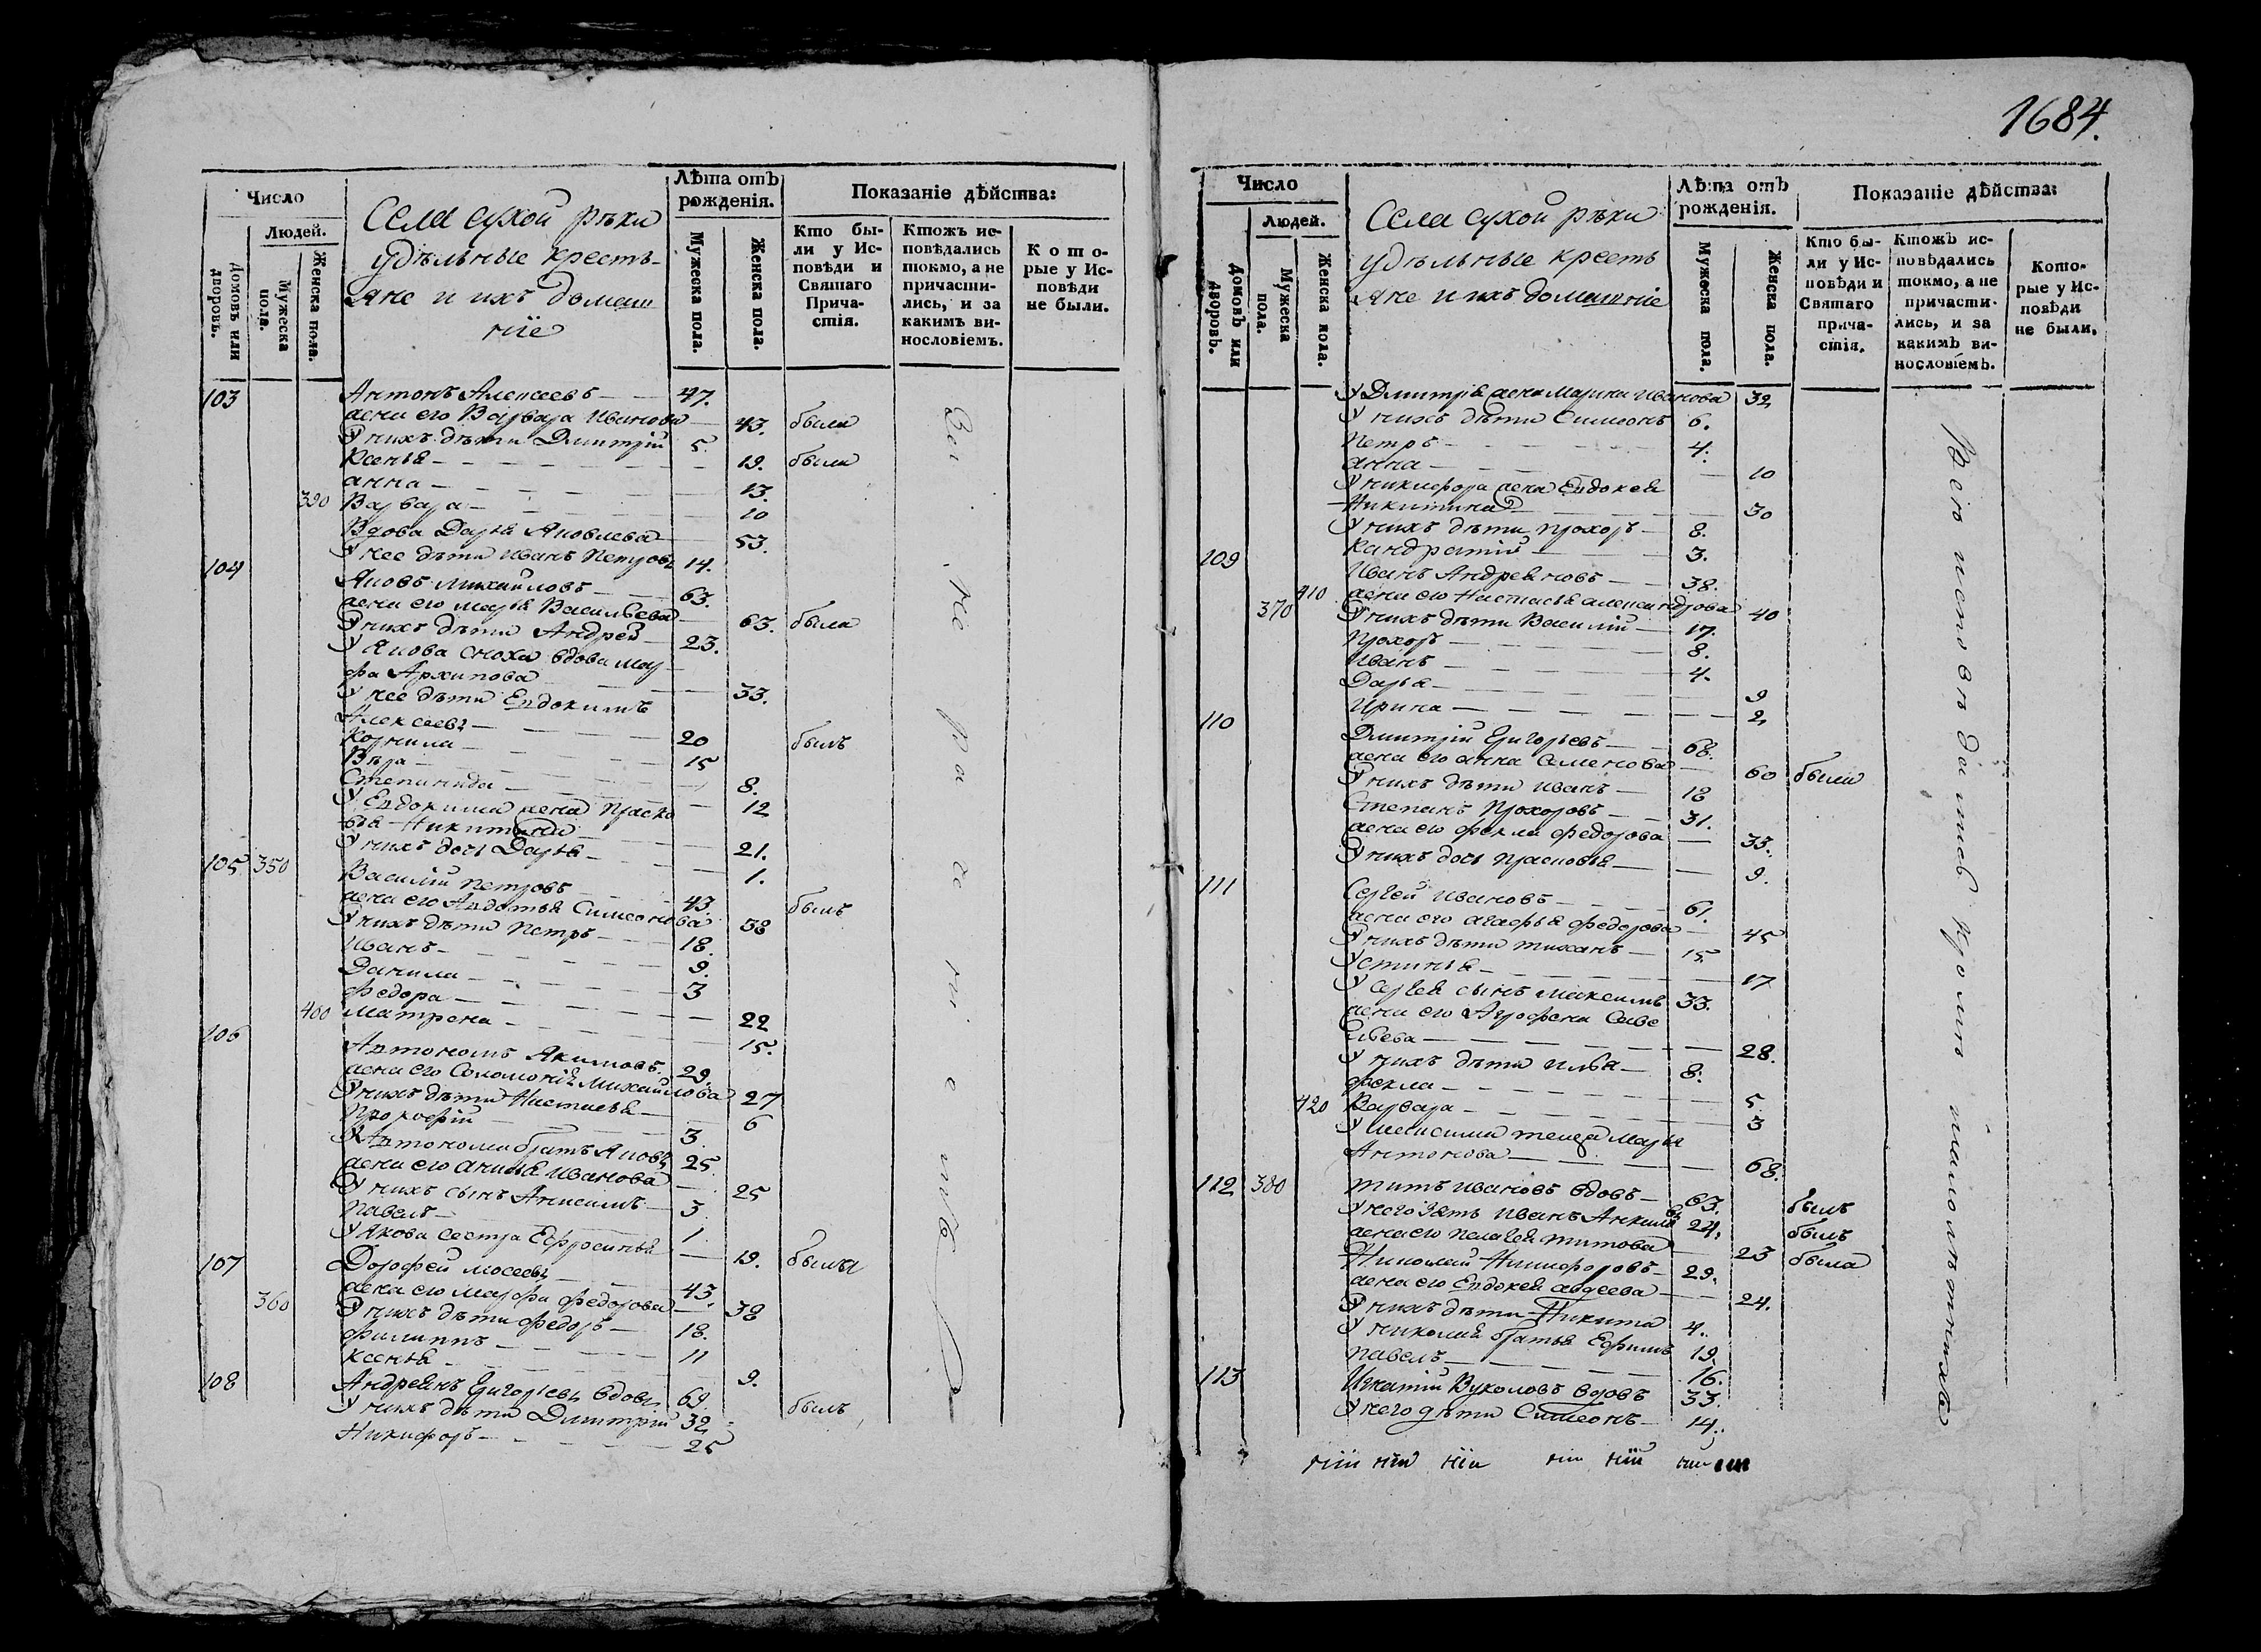 1684.
Число
Людей.
Домовъ или дворовъ.
Мужеска пола.
Женска пола.
Села сухой рѣки
удѣльные кресть-
яне и ихъ домаш
ніе
Лѣта отъ рожденія.
Мужеска пола.
Женска пола.
Показаніе дѣйства:
Кто бы-
ли у Ис-
повѣди и
Святаго
Прича-
стія.
Ктожъ ис-
повѣдались
токмо, а не
причасти-
лись, и за
какимъ ви-
нословіемъ.
Кото-
рые у Ис-
повѣди
не были.
103 Антонъ Алексеевъ 47.
жена его Варвара Иванова 43. были
У нихъ дѣти Дмитрій 5.
Ксенья 19. была
анна 13.
390 Варвара 10
Вдова Дарья Яковлева 53.
У нее дѣти Иванъ Петровъ 14.
104 Яковъ Михайловъ 63.
жена его марья Васильева 63. были
У нихъ дѣти Андрей 23.
У Якова сноха вдова мар
фа Архипова 33.
У нее дѣти Евдокимъ
Алексеевъ 20 былъ
Корнила 15
Вѣра 8.
Степанида 12
У Евдокима жена Праско
вья Никитина 21.
У нихъ дочь Дарья 1.
105 350 Василій Петровъ 43. былъ
жена его Авдотья Симеонова 38
У нихъ дѣти Петръ 18.
Иванъ 9.
Данила 3
Федора 22
400 Матрена 15.
106 Автономъ Якимовъ 29.
жена его Соломонія Михайлова 27
У нихъ дѣти Настасья 6
Прокофій 3.
У Автонома братъ Яковъ 25
жена его Анисья Иванова 25
У нихъ сынъ Анисимъ 3
Павелъ 1.
У Якова сестра Ефросинья 19. была
107 Дорофей Мосеевъ 43.
жена его Марфа Федорова 38
360 У нихъ дѣти Федоръ 18.
Филиппъ 11
Ксенья 9.
108 Андреянъ Григорьевъ вдовъ 69. былъ
У нихъ дѣти Димитрій 32
Никифоръ 25
Число
Людей.
Домовъ или дворовъ.
Мужеска пола.
Женска пола.
Села сухой рѣки
удѣльные кресть
яне и ихъ домашніе
Лѣта отъ рожденія.
Мужеска пола.
Женска пола.
Показаніе дѣйства:
Кто бы-
ли у Ис-
повѣди и
Святаго
прича-
стія.
Ктожъ ис-
повѣдались
токмо, а не
причасти-
лись, и за
какимъ ви-
нословіемъ.
Кото-
рые у Ис-
повѣди
не были.
У Дмитрія жена Марина Иванова 32
У нихъ дѣти Симеонъ 6.
Петръ 4.
анна 10
У никифора жена Евдокея
Никитина 30
У нихъ дѣти прохоръ 8.
Кандратій 3.
109 Иванъ Андреяновъ 38.
410 жена его Настасья александрова 40
370 У нихъ дѣти Василій 17.
Прохоръ 8.
Иванъ 4.
Дарья 9
Ирина 2
110 Дмитрій Григорьевъ 68.
жена его анна Семенова 60 были
У нихъ дѣти Иванъ 18
Степанъ Прохоровъ 31.
жена его фекла федорова 33.
У нихъ дочь прасковья 9.
111 Сергей Ивановъ 61.
жена его агафья федорова 45
У нихъ дѣти тиханъ 15.
Устинья 17
У сергея сынъ максимъ 33.
жена его Аграфена Саве
льева 28.
У нихъ дѣти илья 8.
фекла 5
420 Варвара 3
теща Марья
Антонова 68.
112 380 титъ Ивановъ вдовъ 63. былъ
У него зять Иванъ 24. былъ
жена его пелагея титова 23 была
Николай Никифоровъ 29.
жена его Евдокея авдеева 24.
У нихъ дѣти Никита 4.
У николая братья Ефимъ 19.
павелъ 16.
113 Игнатій Вуколовъ вдовъ 33.
У него дѣти Симеонъ 14.
ніи ніи ніи ніи ніи